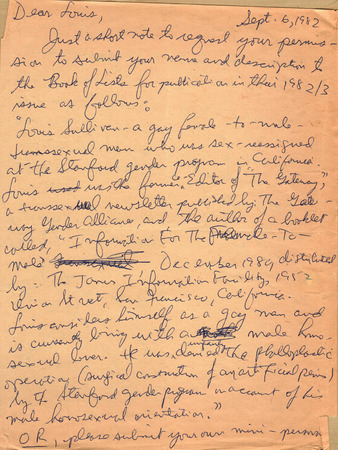 Dear Louis,
Sept. 6, 1982
Just a short note to request your permis-
sion to submit your name and description to
the Book of Lists for publication in their 1982/3
issue as follows:
"Louis Sullivan - a gay female-to-male
transsexual man who was sex-reassigned
at the Stanford gender program in California.
Louis was the former Editor of "The Gateway,"
a transsexual newsletter published by the Gate-
way Gender Alliance and the author of a booklet
called, "Information For The Female-To-
male December 1980, distributed
by: The Janus Information Facility, 1952
Union Street, San Francisco, California.
Louis considers himself as a gay man and
is currently living with a male homo-
sexual lover. He was denied the phalloplastic
operation (surgical construction of an artificial penis)
by the Stanford gender program on account of his
male homosexual orientation."
OR, please submit your own mini-